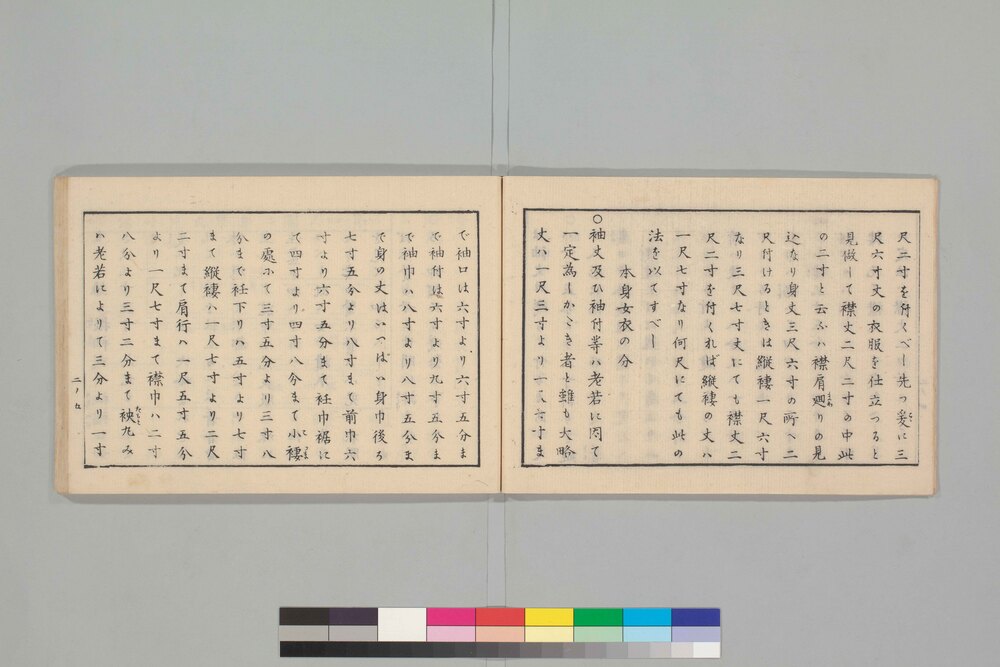 尺二寸を付くべし先つ爰に三
尺六寸丈の衣服を仕立つると
見做して襟丈二尺二寸の中此
の二寸と云ふハ襟肩廻りの見
込なり身丈三尺六寸の所へ二
尺付けるときは縦褄一尺六寸
なり三尺七寸丈にても襟丈二
尺二寸を付くれば縦褄の丈ハ
一尺七寸なり何尺にても此の
法を以てすべし
本身女衣の分
○袖丈及ひ袖付等ハ老若に因て
一定為しかたき者と雖も大略
丈ハ一尺三寸より一尺六寸ま
で袖口は六寸より六寸五分ま
で袖付は六寸より九寸五分ま
で袖巾ハ八寸より八寸五分ま
で身の丈はいつぱい身巾後ろ
七寸五分より八寸まて前巾六
寸より六寸五分まて衽巾裾に
て四寸より四寸八分まて小褄
の處にて三寸五分より三寸八
分まで衽下りハ五寸より七寸
まて縦褄ハ一尺七寸より二尺
二寸まて肩行ハ一尺五寸五分
より一尺七寸まて襟巾ハ二寸
八分より三寸二分まて袂丸み
ハ老若によりて三分より一寸
二ノ九